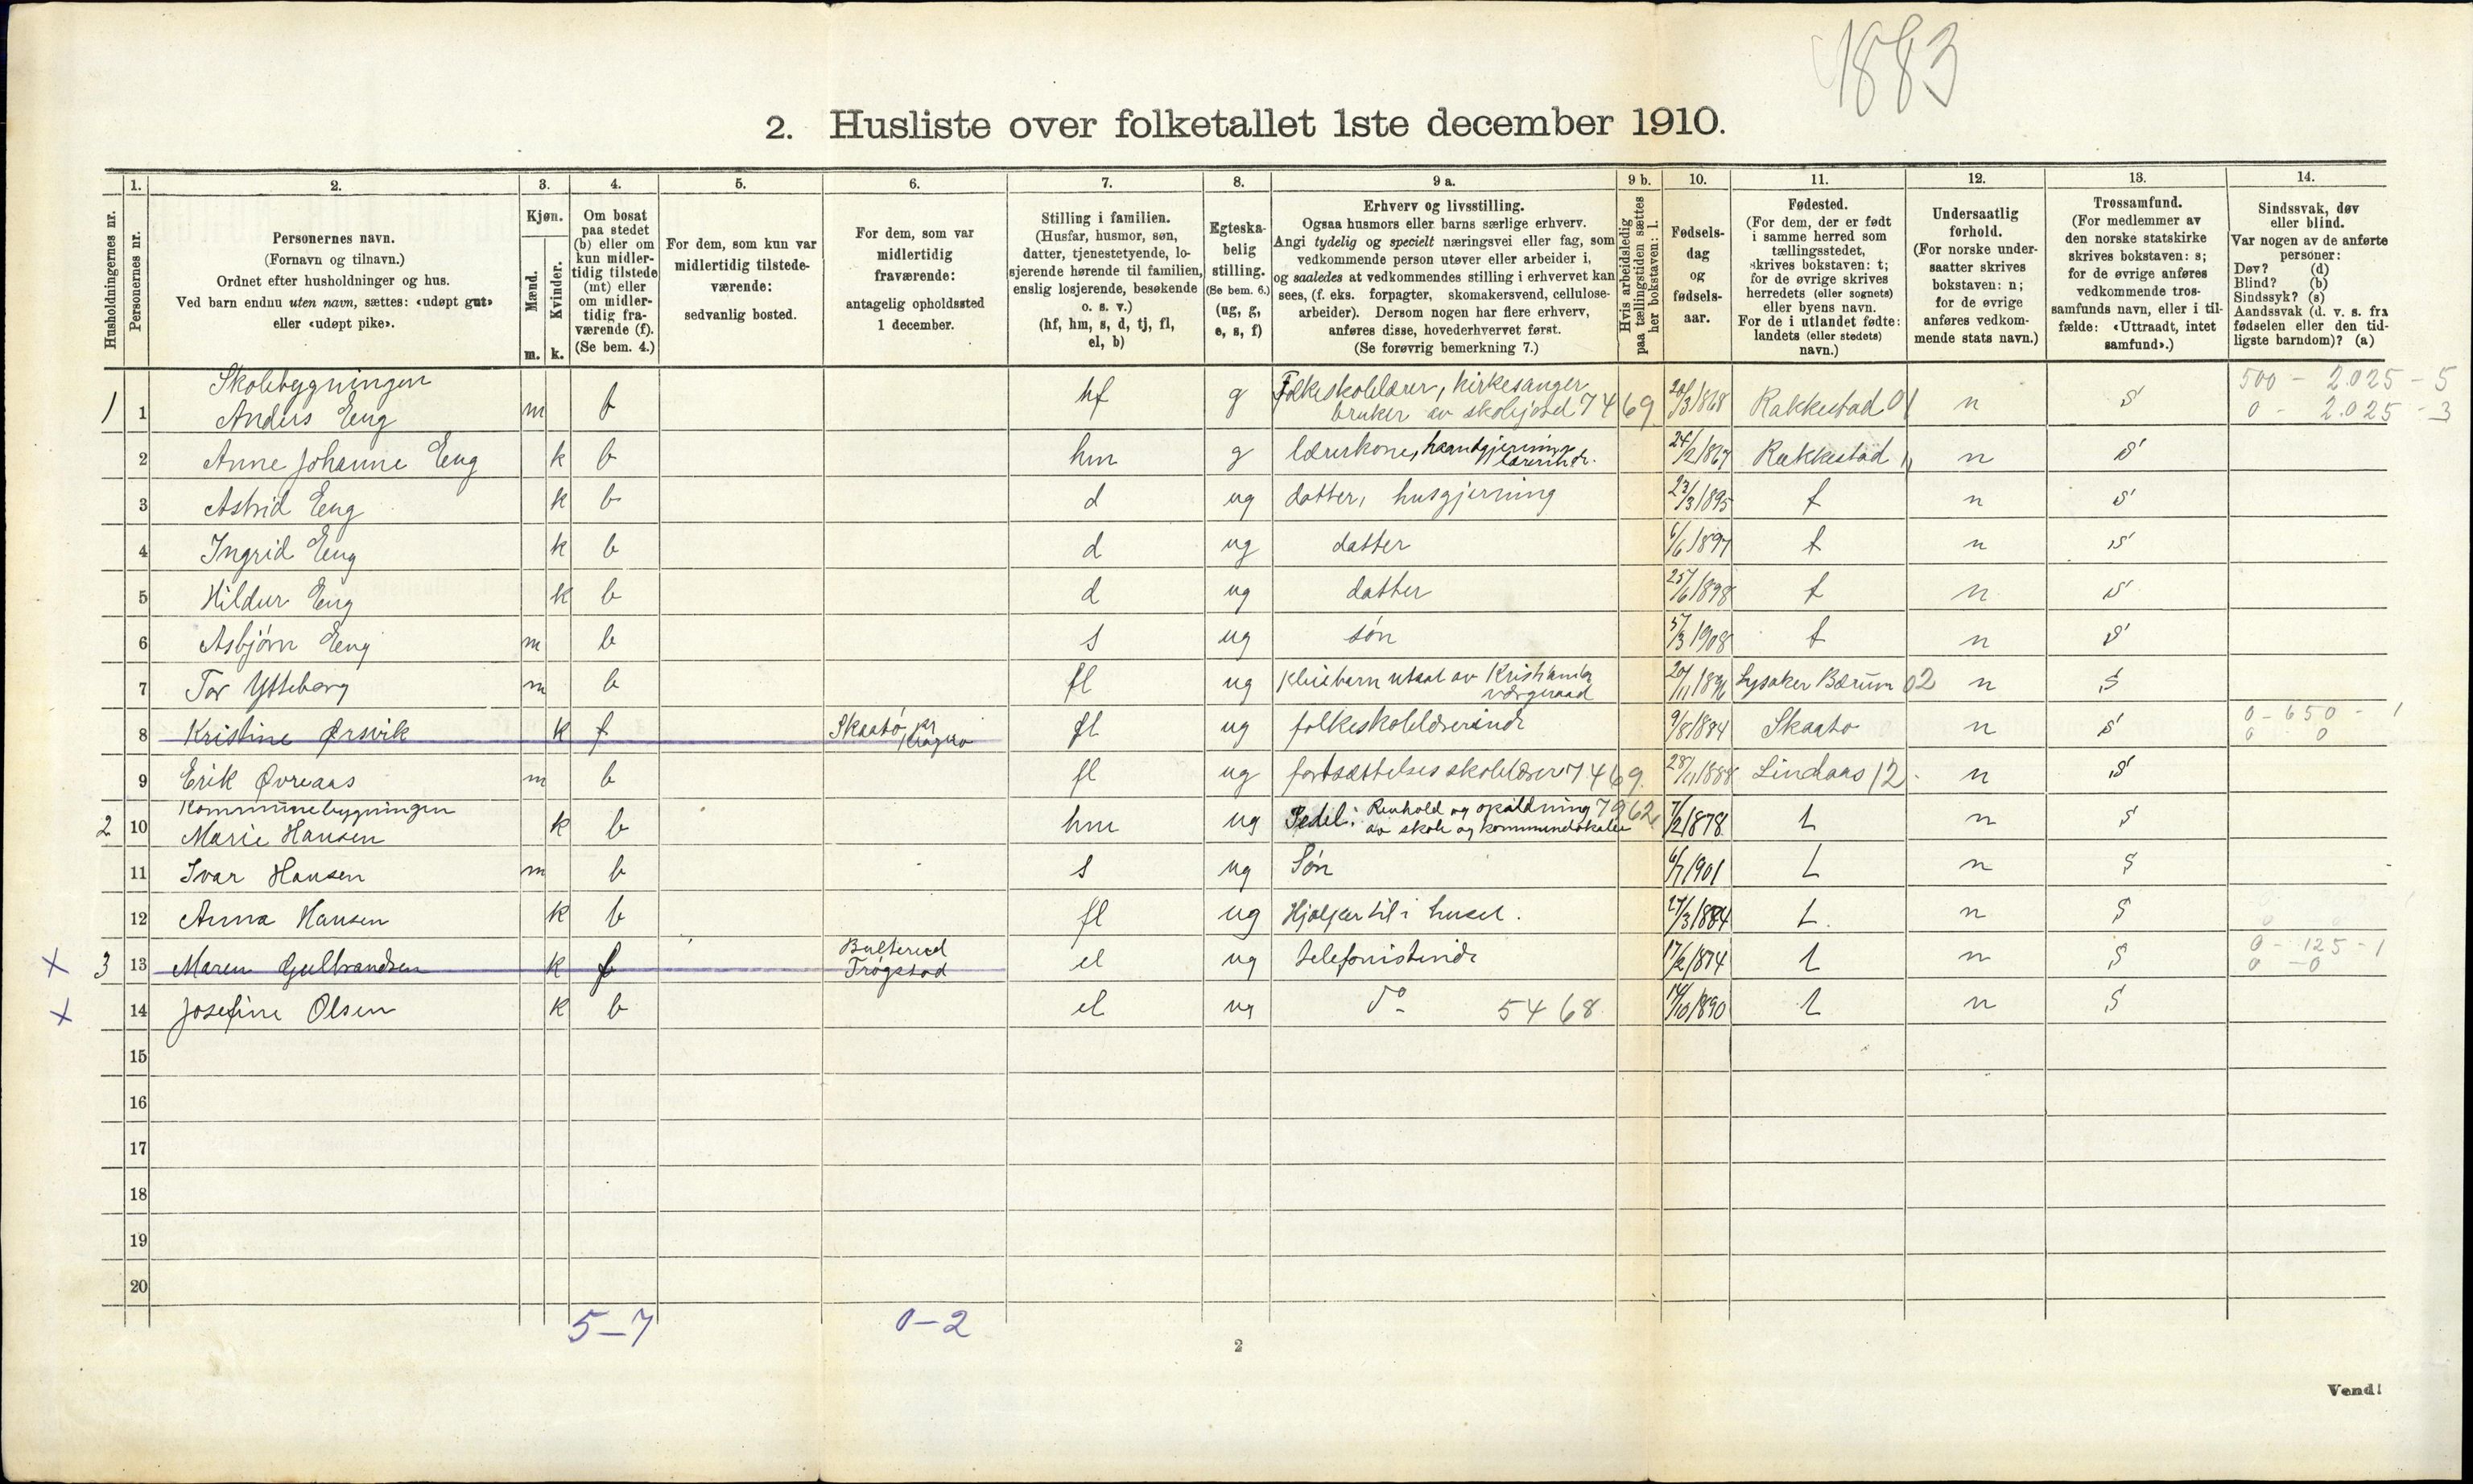 1883
2. Husliste over folketallet 1ste december 1910.
Husholdningernes nr.
1. Personernes nr.
2. Personernes navn. (Fornavn og tilnavn.) Ordnet efter husholdninger og hus. Ved barn endnu uten navn, sættes: «udøpt gut» eller «udøpt pike».
3. Kjøn. Mænd. m. Kvinder. k.
4. Om bosat paa stedet (b) eller om kun midlertidig tilstede (mt) eller om midlertidig fraværende (f). (Se bem. 4.)
5. For dem, som kun var midlertidig tilstedeværende: sedvanlig bosted.
6. For dem, som var midlertidig fraværende: antagelig opholdssted 1 december.
7. Stilling i familien. (Husfar, husmor, søn, datter, tjenestetyende, losjerende hørende til familien, enslig losjerende, besøkende o. s. v.) (hf, hm, s, d, tj, fl, el, b)
8. Egteskabelig stilling. (Se bem. 6.) (ug, g, e, s, f)
9 a. Erhverv og livsstilling. Ogsaa husmors eller barns særlige erhverv. Angi tydelig og specielt næringsvei eller fag, som vedkommende person utøver eller arbeider i, og saaledes at vedkommendes stilling i erhvervet kan sees, (f. eks. forpagter, skomakersvend, cellulosearbeider). Dersom nogen har flere erhverv, anføres disse, hovederhvervet først. (Se forøvrig bemerkning 7.)
9 b. Hvis arbeidsledig paa tællingstiden sættes her bokstaven: l.
10. Fødselsdag og fødselsaar.
11. Fødested. (For dem, der er født i samme herred som tællingsstedet, skrives bokstaven: t; for de øvrige skrives herredets (eller sognets) eller byens navn. For de i utlandet fødte: landets (eller stedets) navn.)
12. Undersaatlig forhold. (For norske undersaatter skrives bokstaven: n; for de øvrige anføres vedkommende stats navn.)
13. Trossamfund. (For medlemmer av den norske statskirke skrives bokstaven: s; for de øvrige anføres vedkommende trossamfunds navn, eller i tilfælde: «Uttraadt, intet samfund».)
14. Sindssvak, døv eller blind. Var nogen av de anførte personer: Døv? (d) Blind? (b) Sindssyk? (s) Aandssvak (d. v. s. fra fødselen eller den tidligste barndom)? (a)
Skolebygningen 500 - 2.025 - 5
1 1 Anders Eeng m b hf g Folkeskolelærer, kirkesanger bruker av skolejord 7469 20/3 1868 Rakkestad 01 n s 0 - 2.025 - 3
2 Anne Johanne Eeng k b hm g lærerkone, haandgjernings lærerinde. 24/2 1867 Rakkestad " n s
3 Astrid Eeng k b d ug datter, husgjerning 23/3 1895 t n s
4 Ingrid Eeng k b d ug datter 6/6 1897 t n s
5 Hildur Eeng k b d ug datter 25/6 1898 t n s
6 Asbjørn Eeng m b s ug søn 5/3 1908 t n s
7 Tor Ytteborg m b fl ug Pleiebarn utsat av Kristiania værgeraad 20/11 1896 Lysaker Bærum 02 n s
8 Kristine Ørsvik k f Skaatø pr Kragerø fl ug folkeskolelærerinde 9/8 1884 Skaatø n s 0 - 650 - 1
0 0
9 Erik Øvreaas m b fl ug fortsættelsesskolelærer 7469. 28/11 1888 Lindaas 12 n s
Kommunebygningen
2 10 Marie Hansen k b hm ug Pedel: Renhold og opvarmning av skole og kommunelokaler 7962 7/2 1878 t n s
11 Ivar Hansen m b s ug Søn 6/7 1901 t n s
12 Anna Hansen k b fl ug Hjælper til i huset. 27/3 1884 t. n s
3 13 Maren Gulbrandsen k f Bulterud Trøgstad el ug telefonistinde 17/2 1874 t n s 0 - 125 - 1
0 - 0
14 Josefine Olsen k b el ug do 5468 14/10 1890 t n s
15
16
17
18
19
20
5-7 0-2
2
Vend!